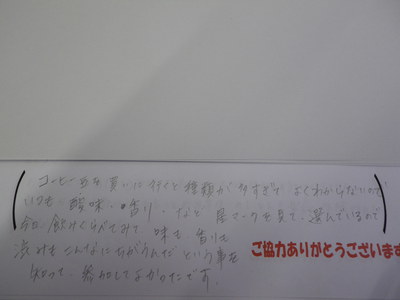 コーヒー豆を買いに行くと種類が多すぎて、よくわからないので
いつも酸味・香り、など 星マークを見て、選んでいるので
今日、飲みくらべてみて、味も香りも
渋みもこんなにちがうんだという事を
知って、参加してよかったです。
ご協力ありがとうございます